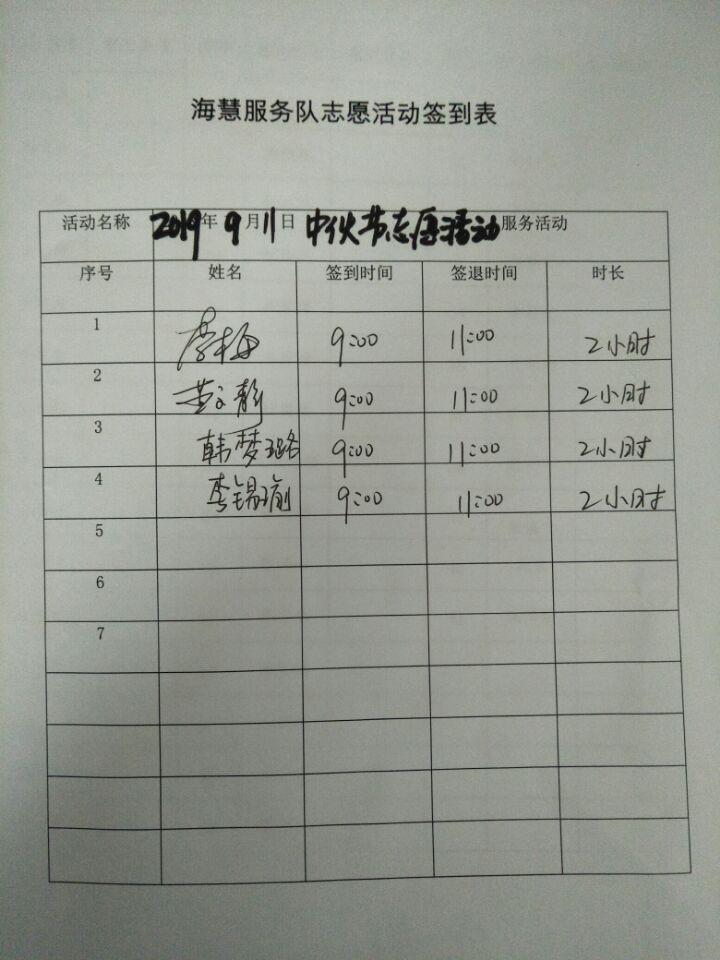 海慧服务队志愿活动签到表
活动名称 2019年9月11日 中秋节志愿活动服务活动
序号 姓名 签到时间 签退时间 时长
1 9:00 11:00 2小时
2 黄文静 9:00 11:00 2小时
3 韩梦璐 9:00 11:00 2小时
4 李锡瑜 9:00 11:00 2小时
5
6
7